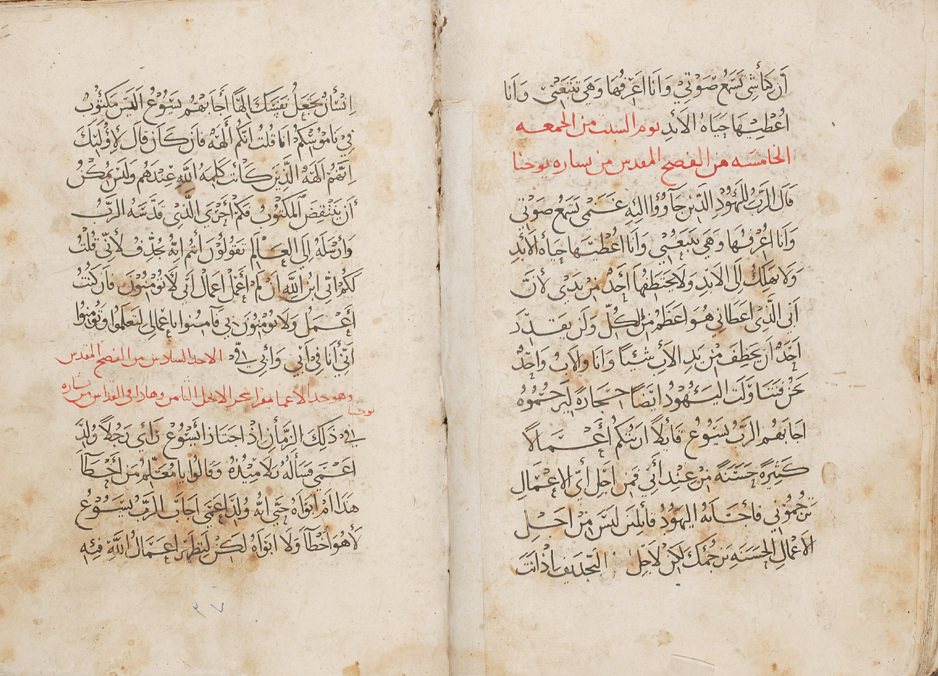 أن كباشي تسمع صوتي وأنا اعرفها وهي تتبعني وأنا
اعطيها حياة الأبد يوم السبت من الجمعه
الخامسه من الفصح المقدس من بشاره يوحنا
قال الرب لليهود الذين جاووا اليه غنمي تسمع صوتي
وأنا اعرفها وهي تتبعني وأنا اعطيها حياة الأبد
ولا تهلك إلى الابد ولا يختطفها أحد من يدي لأن
أبي الذي اعطاني هو اعظم من الكل ولن يقدر
احد أن يخطف من يد الأب شيئا وأنا والاب واحد
نحن فتناولت اليهود ايضا حجارة ليرجموه
اجابهم الرب يسوع قايلا اريتكم أعمالا
كثيرة حسنة من عند أبي فمن اجل أي الاعمال
ترجموني فاجابه اليهود قائلين ليس من اجل
الأعمال الحسنه نرجمك لكن لاجل التجديف اذ انت
انسان تجعل نفسك الها أجابهم يسوع اليس مكتوب
في ناموسكم انما قلت انكم ألهة فان كان قال لاولئك
انهم الهة الذين كانت كلمة الله عندهم وليس يمكن
أن ينتقض المكتوب فكم أحرى الذي قدسه الرب
وارسله إلى العالم تقولون انتم انه يجدف لأني قلت
لكم اني ابن الله ان لم اعمل اعمال ابي فلا تومنون فان كنت
أعمل ولا تومنون بي فآمنوا باعمالي لتعلموا وتومنوا
انني أنا في أبي وأبي في الاحد السادس من الفصح المقدس
وهو حد الأعما مقرا سحر الانجيل الثامن وهاذا في القداس من بشاره
يوحنا
في ذلك الزمان اذ اجتاز ايسوع رأى رجلا ولد
اعمى فسأله تلاميذه وقالوا يا معلم من أخطأ
هذا أم ابواه حتى انه ولد اعمى اجاب الرب يسوع
لا هو اخطأ ولا ابواه لكن لتظهر اعمال الله فيه
٣٧